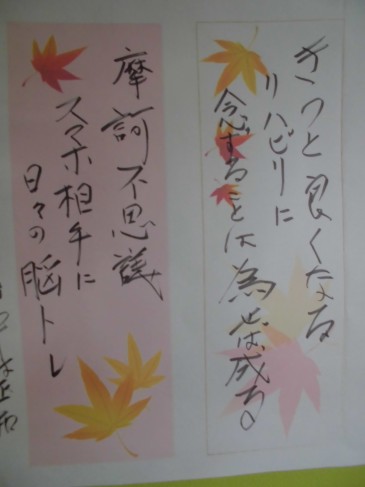 きっと良くなる
リハビリに
念ずることは為せば成る
摩訶不思議
スマホ相手に
日々の脳トレ